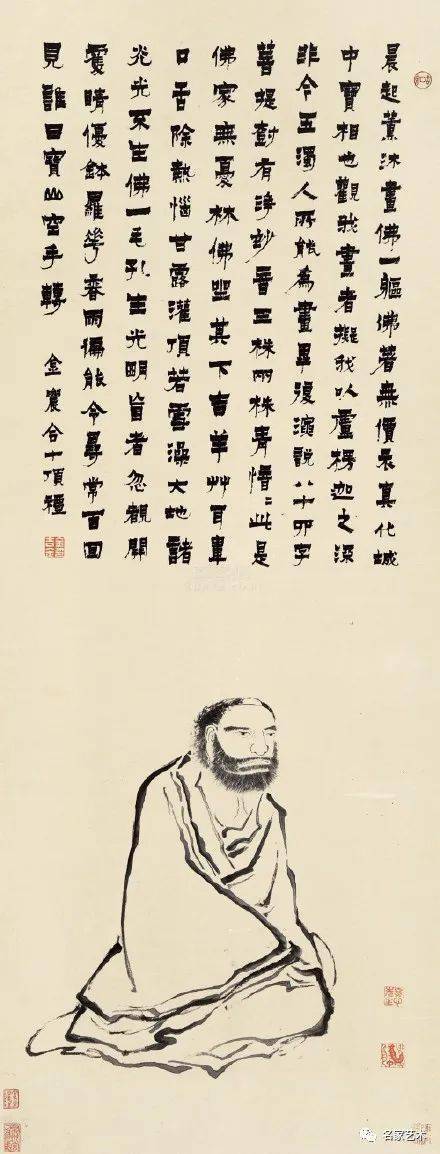 晨起薰沐畫佛一軀佛著無價衣真化城
中寶相也觀我畫者擬我以盧楞迦之深
非今五濁人所能為畫畢復演說八十四字
菩提樹有淨妙音五株兩株青愔〻此是
佛家無憂林佛坐其下吉羊艸耳
口舌除熱惱甘露灌頂若雪澡大地諸
光不生佛一毛孔生光明盲者忽觀開
雙晴優鉢羅花香兩偏能令尋常百回
見誰曰寶山空手轉 金農合十頂禮
名家艺术